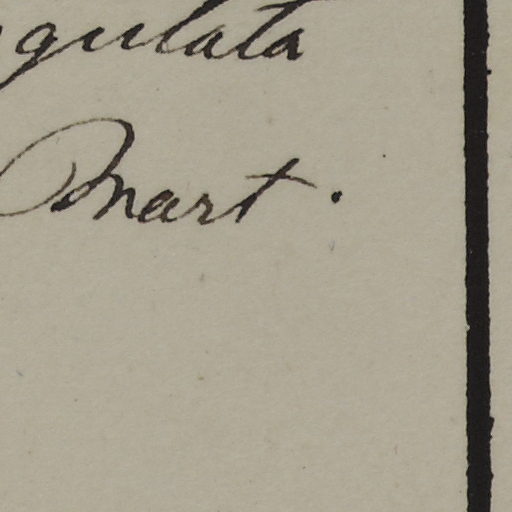 ngulata
Mart.